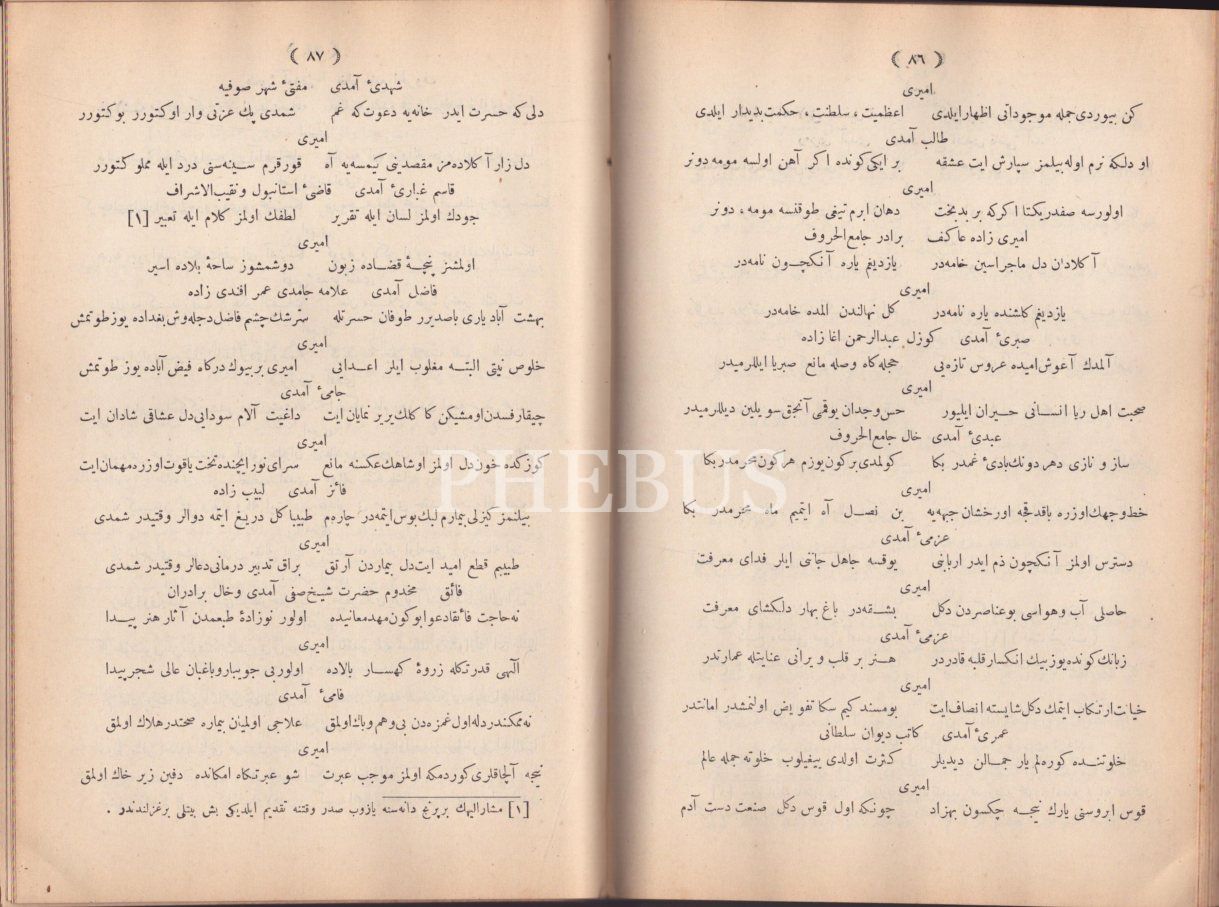 ( ٨٦ )
اميرى
كن بيوردى جمله موجوداتى اظهار ايلدى اعظميت ، سلطنت ، حكمت بديدار ايلدى
طالب آمدى
او دلكه نرم اوله بيلمز سپارش ايت عشقه بر ايكى كونده اكر آهن اولسه مومه دونر
اميرى
اولورسه صفدر يكتا اكركه بر بدبخت دهان ابرم تيغى طوقنسه مومه ، دونر
اميرى زاده عاكف برادر جامع الحروف
آكلادان دل ماجراسين خامه در يازديغم ياره آنكچون نامه در
اميرى
يازديغم كلشنده ياره نامه در كل نهالندن المده خامه در
صبرىٔ آمدى كوزل عبدالرحمن اغا زاده
آلمدك آغوش اميده عروس تازه يى حجله كاه وصله مانع صبريا ايللرميدر
اميرى
صحبت اهل ريا انسانى حيران ايليور حس وجدان يوقمى آنجق سويلين ديللرميدر
عبدىٔ آمدى خال جامع الحروف
ساز و نازى دهر دونك بادىٔ غمدر بكا كولمدى بر كون يوزم هر كون محرمدر بكا
اميرى
خط وجهك اوزره باقدقجه او رخشان جبهه يه بن نصل آه ايتميم ماه محرمدر بكا
عزمىٔ آمدى
دسترس اولمز آنكچون ذم ايدر اربابنى يوقسه جاهل جاننى ايلر فداى معرفت
اميرى
حاصلى آب وهواسى بوعناصردن دكل بشقه در باغ بهار دلكشاى معرفت
عزمىٔ آمدى
زبانك كونده يوز بيك انكسار قلبه قادردر هنر بر قلب ويرانى عنايتله عمارتدر
اميرى
خيانت ارتكاب ايتمك دكل شايسته انصاف ايت بومسند كيم سكا تفويض اولنمشدر امانتدر
عمرىٔ آمدى كاتب ديوان سلطانى
خلوتنده كوره لم يار جمالن ديديلر كثرت اولدى بيغيلوب خلوته جمله عالم
اميرى
قوس ابروسنى يارك نيجه چكسون بهزاد چونكه اول قوس دكل صنعت دست آدم
( ٨٧ )
شهدىٔ آمدى مفتىٔ شهر صوفيه
دلى كه حسرت ايدر خانه يه دعوت كه غم شمدى پك عزتى وار اوكتورر بوكتورر
اميرى
دل زار آكلاده مز مقصدينى كيمسه يه آه قورقرم سينه سنى درد ايله مملو كتورر
قاسم غبارىٔ آمدى قاضىٔ استانبول ونقيب الاشراف
جودك اولمز لسان ايله تقرير لطفك اولمز كلام ايله تعبير [١]
اميرى
اولمشز پنچۀ قضاده زبون دوشمشوز ساحۀ بلاده اسير
فاضل آمدى علامه جامدى عمر افندى زاده
بهشت آباد يارى باصدير طوفان حسرتله سرشك چشم فاضل دجله وش بغداده يوز طوتمش
اميرى
خلوص نيتى البته مغلوب ايلر اعدايى اميرى بر بيوك دركاه فيض آباده يوز طوتمش
جامىٔ آمدى
چيقار فسدن او مشيكن كاكلك يرير نمايان ايت داغيت آلام سودايى دل عشاقى شادان ايت
اميرى
كوزكده خون دل اولمز اوشاهك عكسنه مانع سراى نور ايچنده تخت ياقوت اوزره مهمان ايت
فائز آمدى لبيب زاده
بيلنمز كيزلى بيمارم لبك بوس ايتمه در چاره م طبيبا كل دريغ ايتمه دوالر وقتيدر شمدى
اميرى
طبيبم قطع اميد ايت دل بيماردن آرتق براق تدبير درمانى دعالر وقتيدر شمدى
فائق مخدوم حضرت شيخ صفى آمدى وخال برادران
نه حاجت فائقا دعوا بوكون مهد معانيده اولور نوزادۀ طبعمدن آثار هنر پيدا
اميرى
آلهى قدرتكله زروۀ كهسار بالاده اولور بى جويبار وباغبان عالى شجر پيدا
فامىٔ آمدى
نه ممكندر دله اول غمزه دن بى وهم وباك اولمق علاجى اولميان بيماره صحتدر هلاك اولمق
اميرى
نيجه آلچاقلرى كوردمكه اولمز موجب عبرت شو عبرتكاه امكانده دفين زير خاك اولمق
[١] مشاراليهك بر پرنج دانه سنه يازوب صدر وقتنه تقديم ايلديكى بش بيتلى بر غزلندندر .
PHEBUS